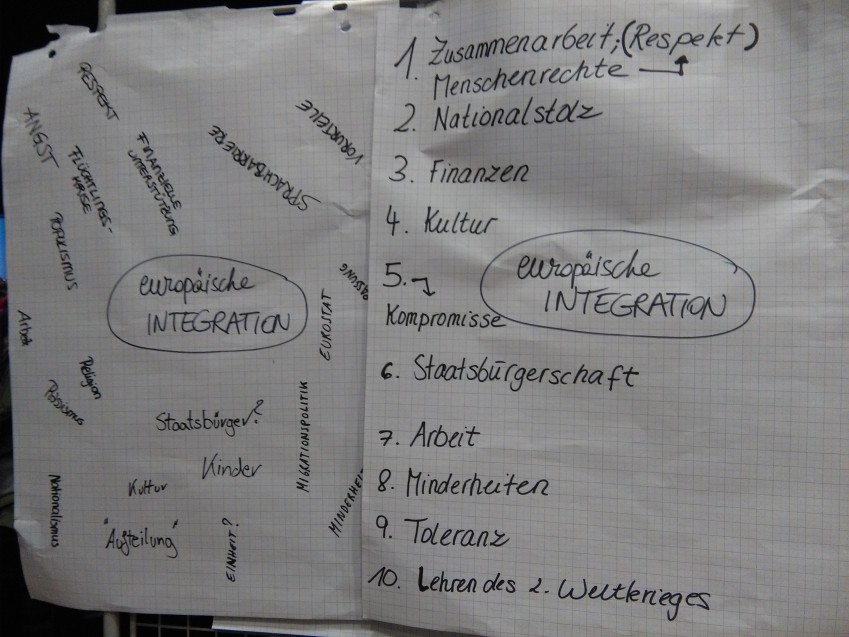 RESPEKT
ANGST
FLÜCHTLINGS-
FINANZIELLE
UNTERSTÜTZUNG
SPRACHBARRIERE
VORURTEILE
POPULISMUS
europäische
INTEGRATION
EUROSTAT
Arbeit
Religion
Rassismus
Staatsbürger?
Kinder
Kultur
MIGRATIONSPOLITIK
Nationalismus
"Aufteilung"
EINHEIT?
1. Zusammenarbeit; (Respekt)
Menschenrechte
2. Nationalstolz
3. Finanzen
4. Kultur
5.
Kompromisse
europäische
INTEGRATION
6. Staatsbürgerschaft
7. Arbeit
8. Minderheiten
9. Toleranz
10. Lehren des 2. Weltkrieges